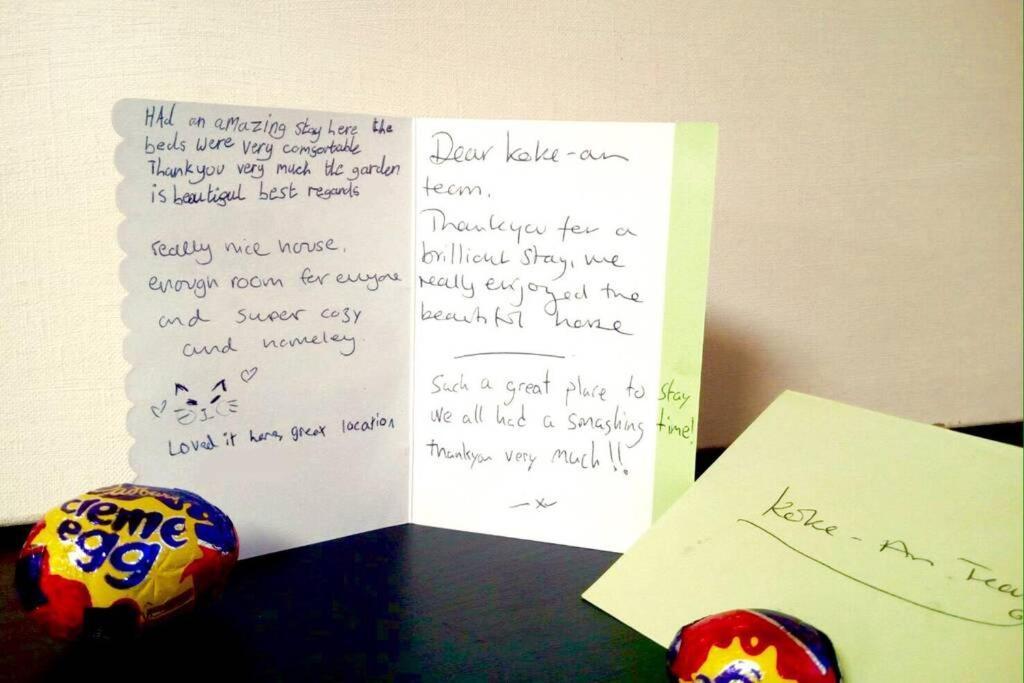 HAd an amazing stay here the
beds were very comfortable
Thankyou very much the garden
is beautiful best regards
really nice house.
enough room for everyone
and super cosy
and homeley.
Loved it here, great location
Dear koke-an
team.
Thankyou for a
brilliant stay, we
really enjoyed the
beautiful house
Such a great place to stay
We all had a smashing time!
thankyou very much!!
x
Cadbury
creme
egg
Koke-An Team